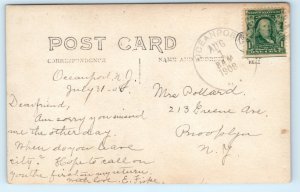 POST CARD
CORRESPONDENCE
NAME AND ADDRESS
OCEANPORT
AUG
1
AM
1908
Oceanport N.J.
July 31-08
Dear friend,
Am sorry you missed
me the other day.
When do you leave
city? Hope to call on
you the first on my return
with love E. Fiske
Mrs Pollard
213 Greene Ave
Brooklyn
N.Y.